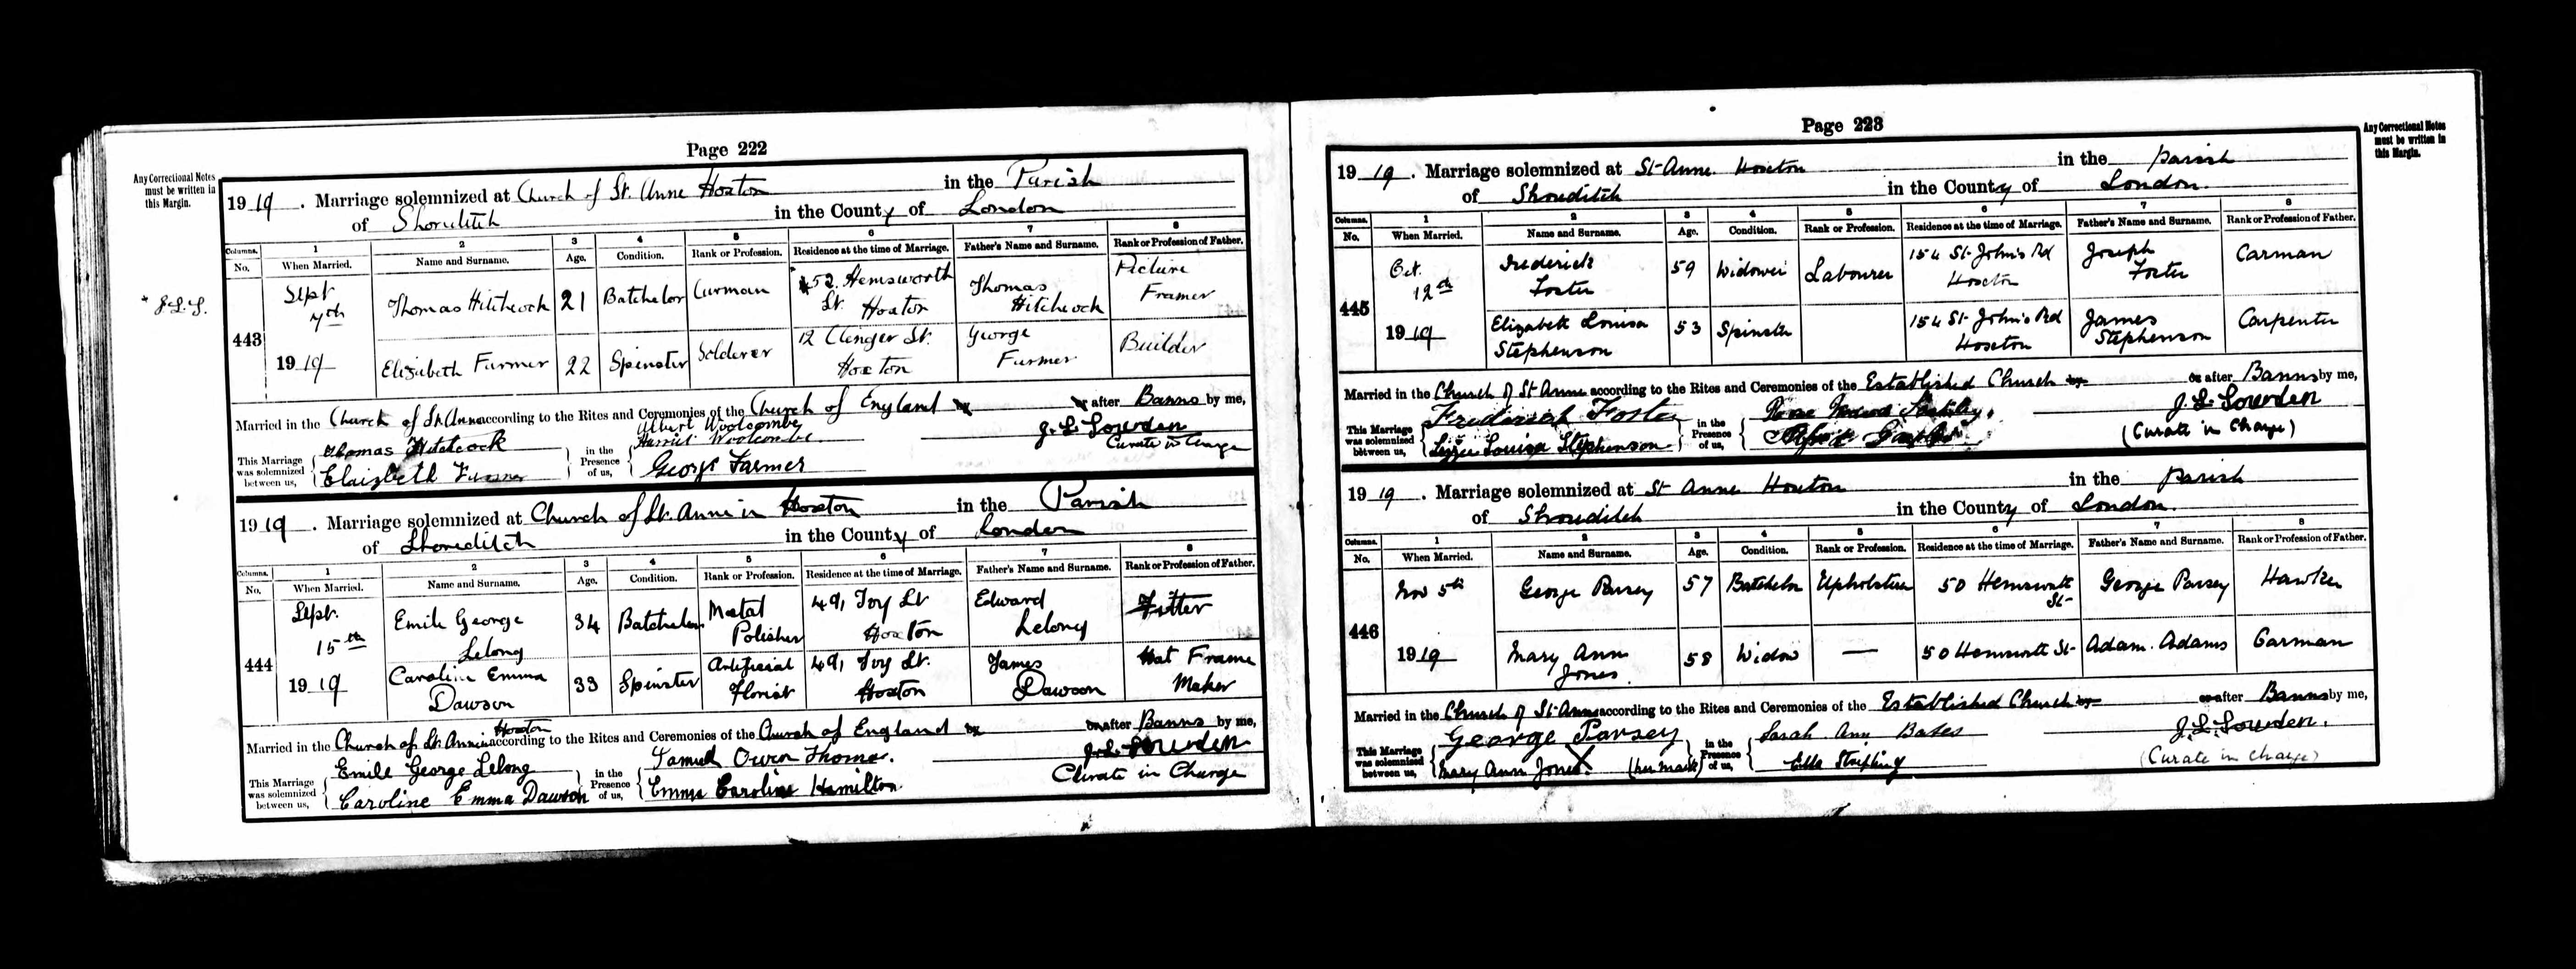 Page 222
Any Correctional Notes
must be written in
this Margin.
1919. Marriage solemnized at Church of St. Anne Hoxton in the Parish
of Shoreditch in the County of London
Columns. 1 2 3 4 5 6 7 8
No. When Married. Name and Surname. Age. Condition. Rank or Profession. Residence at the time of Marriage. Father's Name and Surname. Rank or Profession of Father.
* J.L.L.
443
Sept 7th 1919
Thomas Hitchcock 21 Batchelor Carman *52 Hemsworth St. Hoxton Thomas Hitchcock Picture Framer
Elizabeth Farmer 22 Spinster Solderer 12 Clinger St. Hoxton George Farmer Builder
Married in the Church of St. Anne according to the Rites and Ceremonies of the Church of England by or after Banns by me,
This Marriage was solemnized between us, Thomas Hitchcock
Elaizbeth Farmer
in the Presence of us, Albert Woolcombe
Harriet Woolcombe
George Farmer
J. L. Lowden
Curate in Charge
1919. Marriage solemnized at Church of St. Anne in Hoxton in the Parish
of Shoreditch in the County of London
Columns. 1 2 3 4 5 6 7 8
No. When Married. Name and Surname. Age. Condition. Rank or Profession. Residence at the time of Marriage. Father's Name and Surname. Rank or Profession of Father.
444
Sept. 15th 1919
Emile George Lelong 34 Batchelor Metal Polisher 49, Ivy St Hoxton Edward Lelong Fitter
Caroline Emma Dawson 33 Spinster Artificial Florist 49, Ivy St. Hoxton James Dawson Hat Frame Maker
Married in the Church of St. Anne in Hoxton according to the Rites and Ceremonies of the Church of England by or after Banns by me,
This Marriage was solemnized between us, Emile George Lelong
Caroline Emma Dawson
in the Presence of us, Samuel Owen Thomas.
Emma Caroline Hamilton
J. L. Lowden
Curate in Charge
Page 223
Any Correctional Notes
must be written in
this Margin.
1919. Marriage solemnized at St Anne. Hoxton in the parish
of Shoreditch in the County of London.
Columns. 1 2 3 4 5 6 7 8
No. When Married. Name and Surname. Age. Condition. Rank or Profession. Residence at the time of Marriage. Father's Name and Surname. Rank or Profession of Father.
445
Oct. 12th 1919
Frederick Foster 59 Widower Labourer 154 St John's Rd Hoxton Joseph Foster Carman
Elizabeth Louisa Stephenson 53 Spinster 154 St John's Rd Hoxton James Stephenson Carpenter
Married in the Church of St Anne according to the Rites and Ceremonies of the Established Church by or after Banns by me,
This Marriage was solemnized between us, Frederick Foster
Lizzie Louisa Stephenson
in the Presence of us, Rose
J. L. Lowden
(Curate in Charge)
1919. Marriage solemnized at St Anne Hoxton in the parish
of Shoreditch in the County of London.
Columns. 1 2 3 4 5 6 7 8
No. When Married. Name and Surname. Age. Condition. Rank or Profession. Residence at the time of Marriage. Father's Name and Surname. Rank or Profession of Father.
446
Nov 5th 1919
George Parsey 57 Batchelor Upholsterer 50 Hemsworth St George Parsey Hawker
Mary Ann Jones. 58 Widow — 50 Hemsworth St Adam. Adams Carman
Married in the Church of St Anne according to the Rites and Ceremonies of the Established Church by or after Banns by me,
This Marriage was solemnized between us, George Parsey
Mary Ann Jones. X (her mark)
in the Presence of us, Sarah Ann Bates
Ella Stripling
J. L. Lowden.
(Curate in Charge)